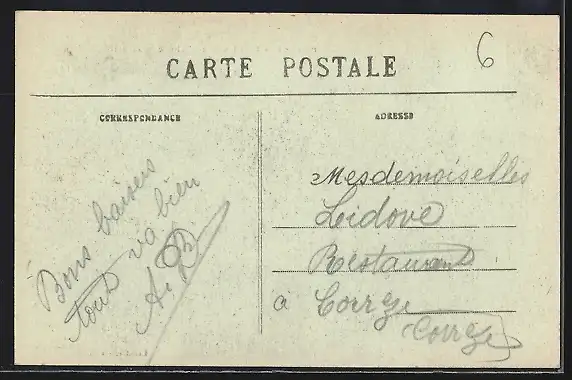 6
CARTE POSTALE
CORRESPONDANCE
ADRESSE
Bons baisers
tout va bien
Mesdemoiselles
Lidove
Restaurant
à Corrèze
Corrèze